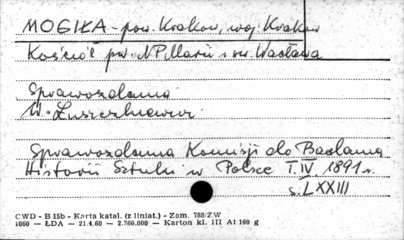 MOGIŁA - pow. Kraków, woj. Kraków
Kościół pw. NP Marii i św. Wacława
Sprawozdania
W. Łuszczkiewicz
Sprawozdania Komisji do Badania
Historii Sztuki w Polsce T. IV 1891 r.
s. LXXIII
CWD - B 15b - Karta katal. (z liniat.) - Zam. 788/ZW
1060 — ŁDA — 21.4.60 — 2.760.000 — Karton kl. III A1 160 g